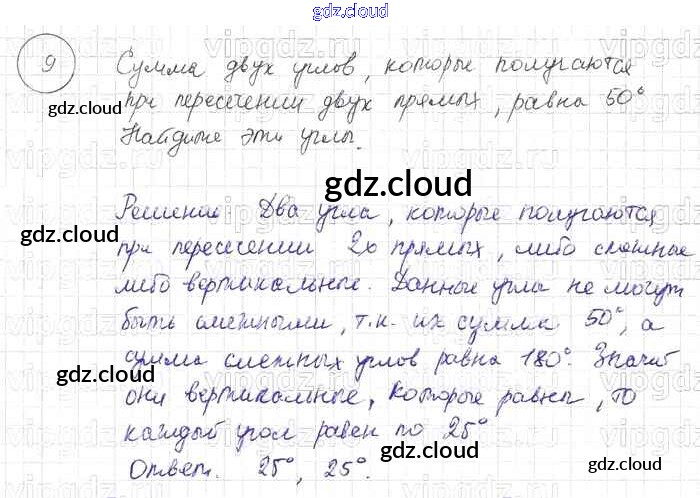 gdz.cloud
9 Сумма двух углов, которые получаются
при пересечении двух прямых, равна 50°
Найдите эти углы.
gdz.cloud
gdz.cloud
Решение. Два угла, которые получаются
gdz.cloud
при пересечении 2х прямых, либо смежные
либо вертикальные. Данные угла не могут
быть смежными, т.к. их сумма 50°, а
сумма смежных углов равна 180°. Значит
gdz.cloud
gdz.cloud
они вертикальные, которые равны, то
каждый угол равен по 25°
gdz.cloud
Ответ. 25°, 25°.
gdz.cloud